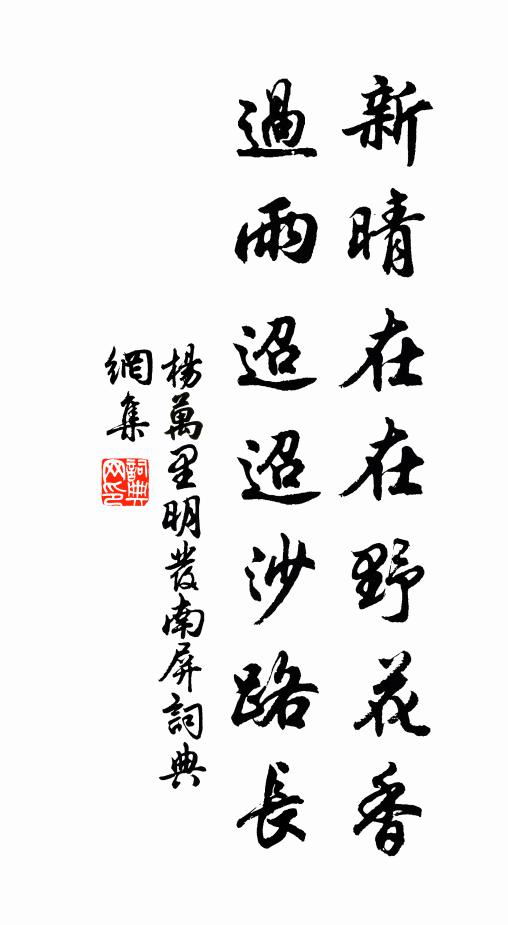 新晴在在野花香
過雨迢迢沙路長
楊萬里明發南屏詞典
網集
詞典
网印